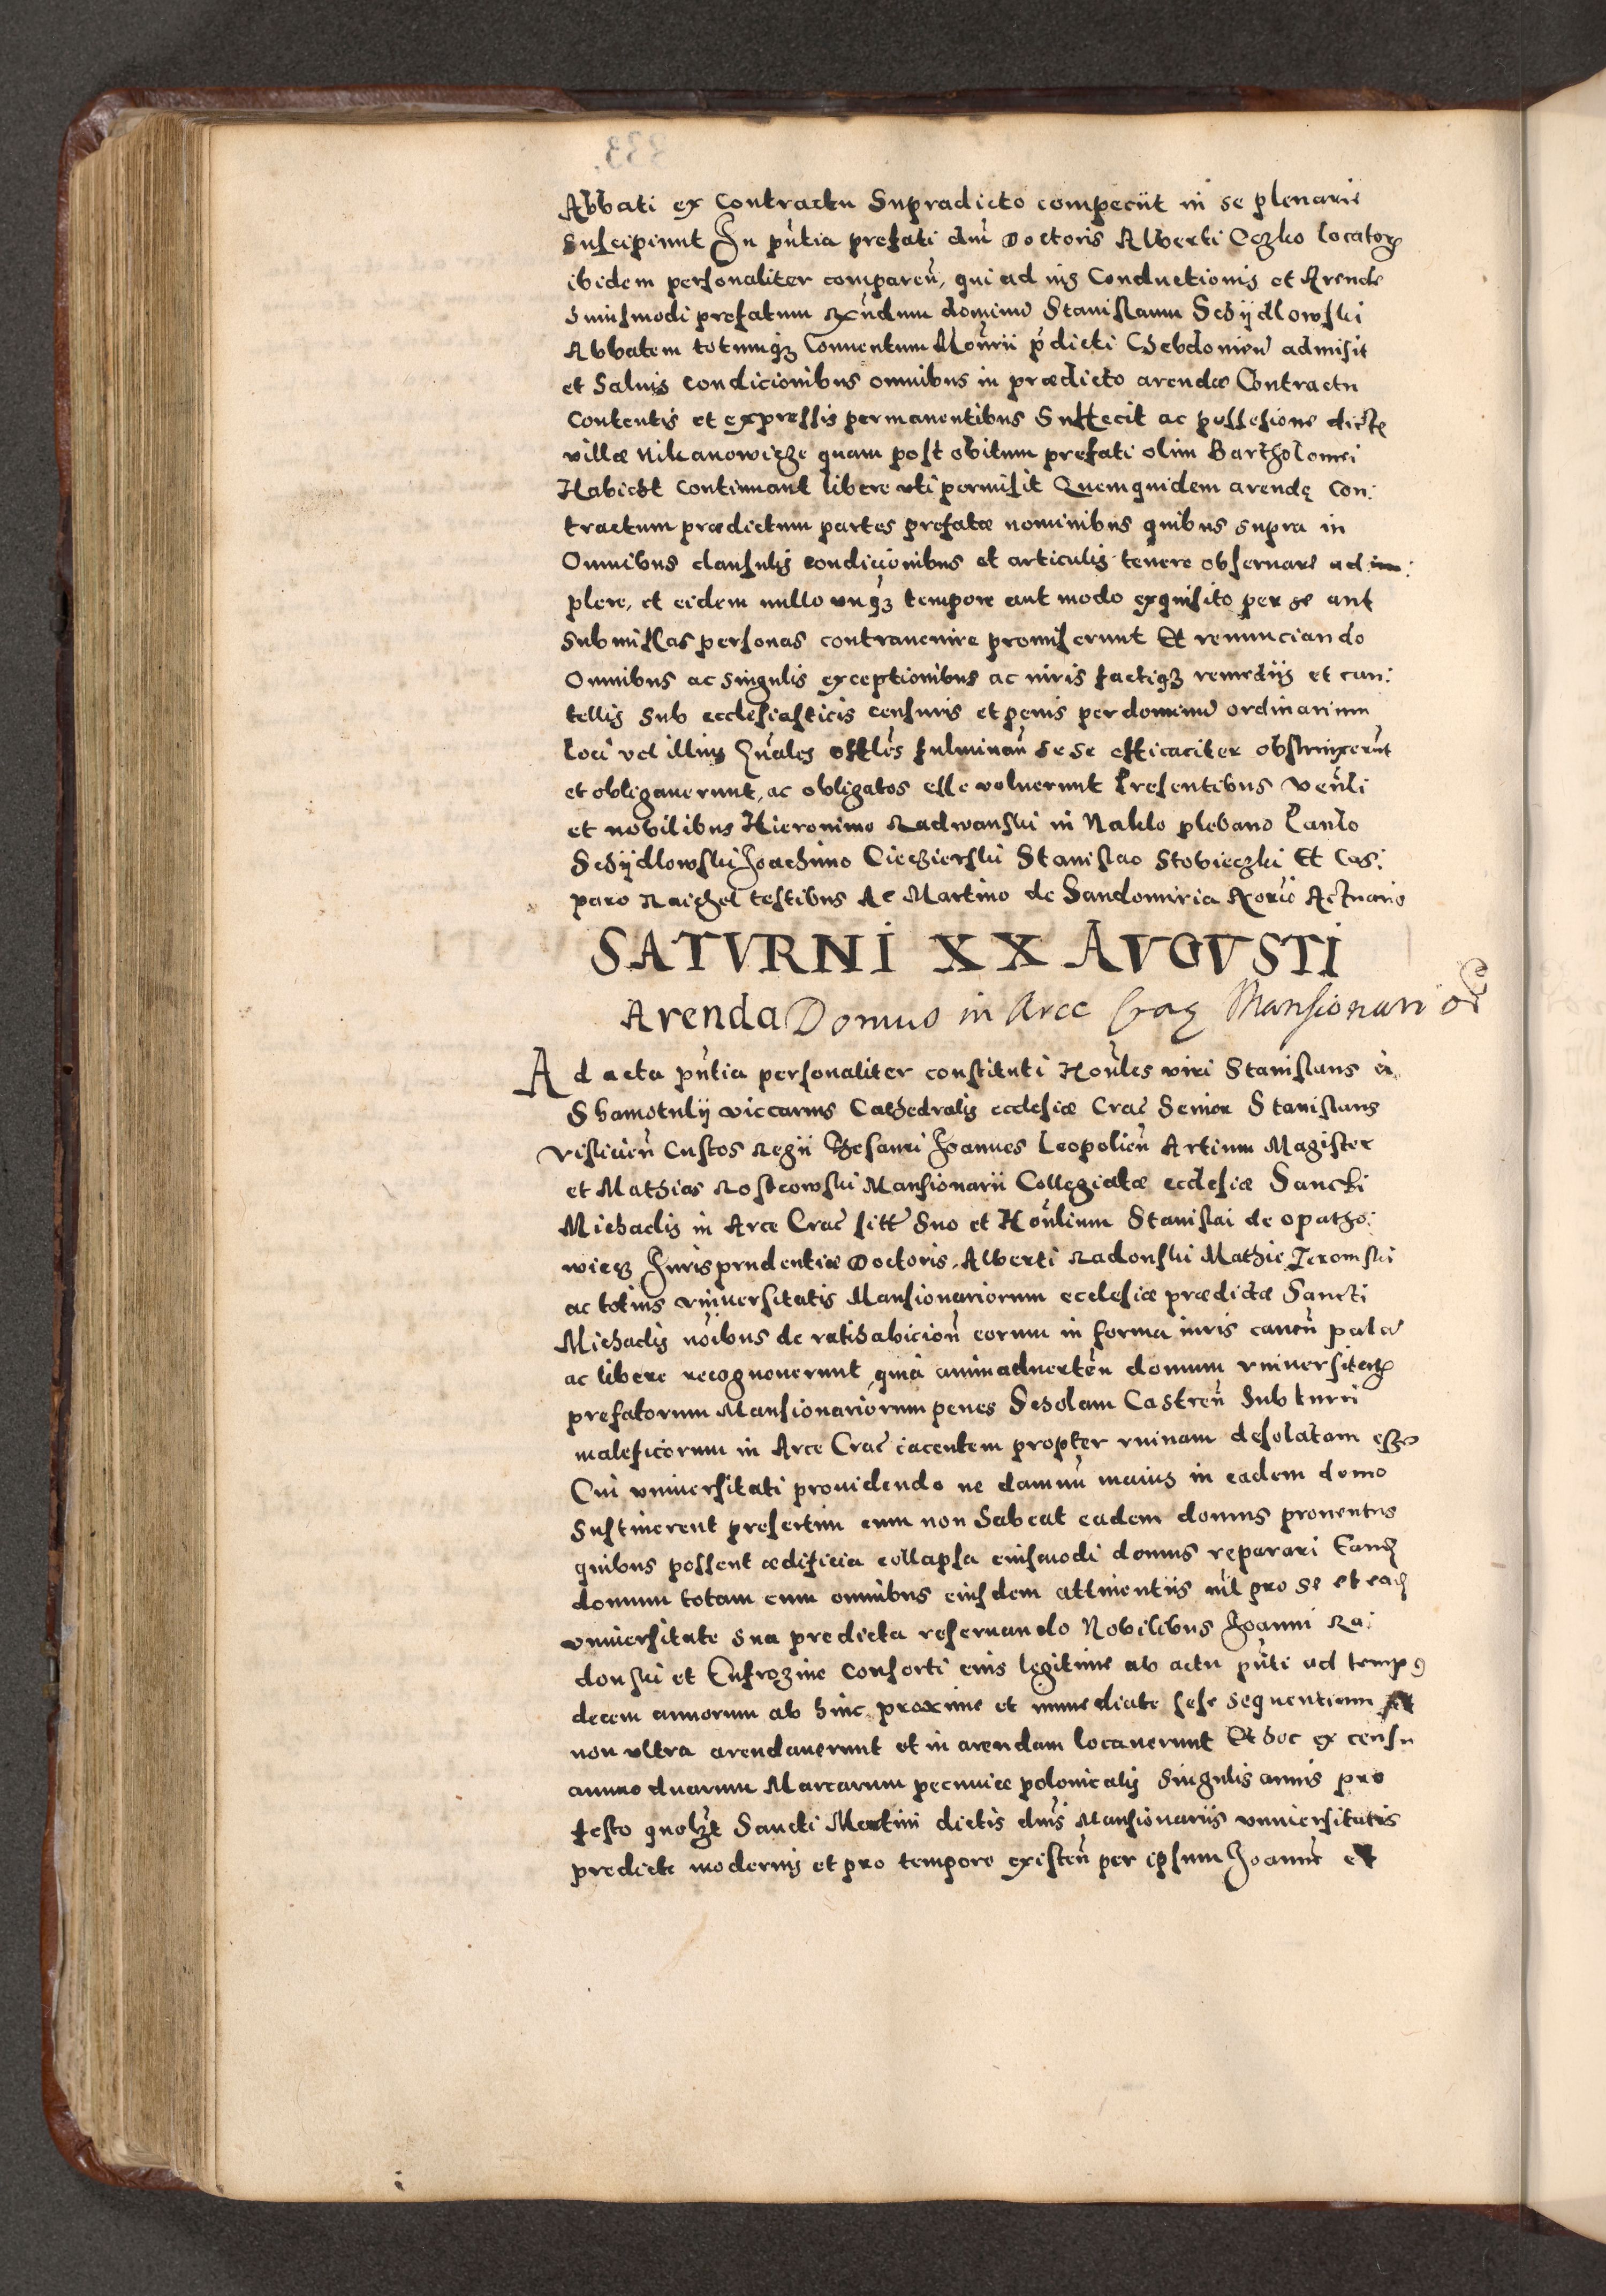 Abbati ex Contractu Supradicto competiit in se plenarie
Suscipiunt In pn̄tia prefati dn̄i Doctoris Alberti Oczko locatorꝭ
ibidem personaliter comparen̄, qui ad ius Conductionis et Arende
huiusmodi prefatum Rn̄dum dominū Stanislaum Schÿdlowski
Abbatem totumqꝫ Conuentum Mon̄rii p̄dicti Chebdouien̄ admisit
et Saluis condicionibus omnibus in prædicto arendæ Contractu
Contentis et expressis permanentibus Suffecit ac possesione dictę
villæ Nikanowicze quam post obitum prefati olim Bartholomei
Habicht Continuant libere vti permisit Quemquidem arendę Con:
tractum prædictum partes prefatæ nominibus quibus supra in
Omnibus clausulis condicionibus et articulis tenere obseruare adim:
plere, et eidem nullo vnqꝫ tempore aut modo exquisito per se aut
Submissas personas contrauenire promiserunt Et renunciando
Omnibus ac singulis exceptionibus ac iuris factiqꝫ remediis et cau:
tellis Sub ecclesiasticis censuris et penis per dominū ordinarium
loci vel illius offl̄es fulminan̄ sese efficaciter obstrinxerūt
et obligauerunt, ac obligatos esse voluerunt Presentibus Ven̄li
et nobilibus Hieronimo Radwanski in Naklo plebano Paulo
Schÿdlowski Joachimo Ciechierski Stanislao Stobieczki Et Cas:
paro Raichel testibus Ac Martino de Sandomiria Actuario
SATVRNI XX AVGVSTI
Arenda Domus in Arce Crac Mansionarior
Ad acta pn̄tia personaliter constituti Hon̄les viri Stanislaus a
Shamotulij viccarius Cathedralis ecclesiæ Crac̄ Senior Stanislaus
Vislicien̄ Custos Regii Thesauri Joannes Leopolien̄ Artium Magister
et Mathias Rosscowski Mansionarii Collegiatæ ecclesiæ Sancti
Michaelis in Arce Crac̄ sitt̄ Suo et Hon̄lium Stanislai de opatho:
wiecz Jurisprudentiæ Doctoris, Alberti Radonski Mathie Jeromski
ac totius vniuersitatis Mansionariorum ecclesiæ prædictæ Sancti
Michaelis no͞ibus de ratihabicion̄ eorum in forma iuris cauen̄ palā
ac libere recognouerunt, quia animaduerten̄ domum vniuersitatꝭ
prefatorum Mansionariorum penes Scholam Castren̄ Sub turri
maleficorum in Arce Crac̄ iacentem propter ruinam desolatam esse
Cui vniuersitati prouidendo ne damnū maius in eadem domo
Sustinerent presertim cum non habeat eadem domus prouentus
quibus possent ædificia collapsa eiusmodi domus reparari Eandē
domum totam cum omnibus eiusdem attinentiis nil pro se et eadē
vniuersitate sua predicta reseruando Nobilibus Joanni Ra:
donski et Eufrozine Consorti eius legitime ab actu pn̄ti ad tempꝰ
decem annorum ab hinc proxime et immediate sese sequentium et
non vltra arendauerunt et in arendam locauerunt Et hoc ex censu
annuo duarum Marcarum pecuniæ polonicalis Singulis annis pro
festo quolz̄t Sancti Martini dictis dn̄is Mansionariis vniuersitatis
predicte modernis et pro tempore existen̄ per ipsum Joannē et